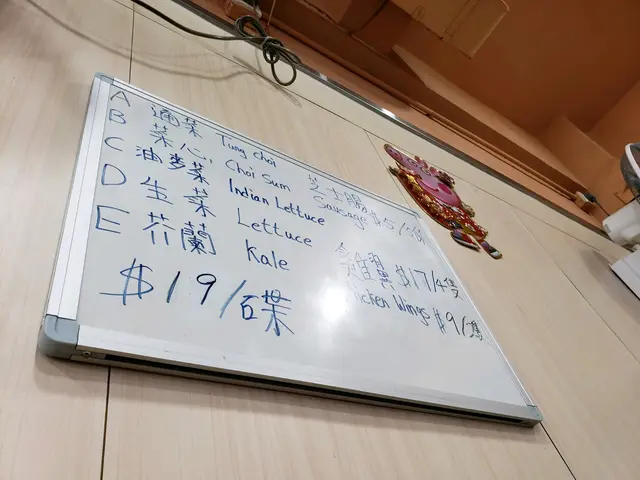 A 通菜 Tung Choi
B 菜心 Choi Sum
C 油麥菜 Indian Lettuce
D 生菜 Lettuce
E 芥蘭 Kale
$19/碟
芝士腸
Sausage $5/
雞翼 $17/4隻
Chicken Wings $9/2隻